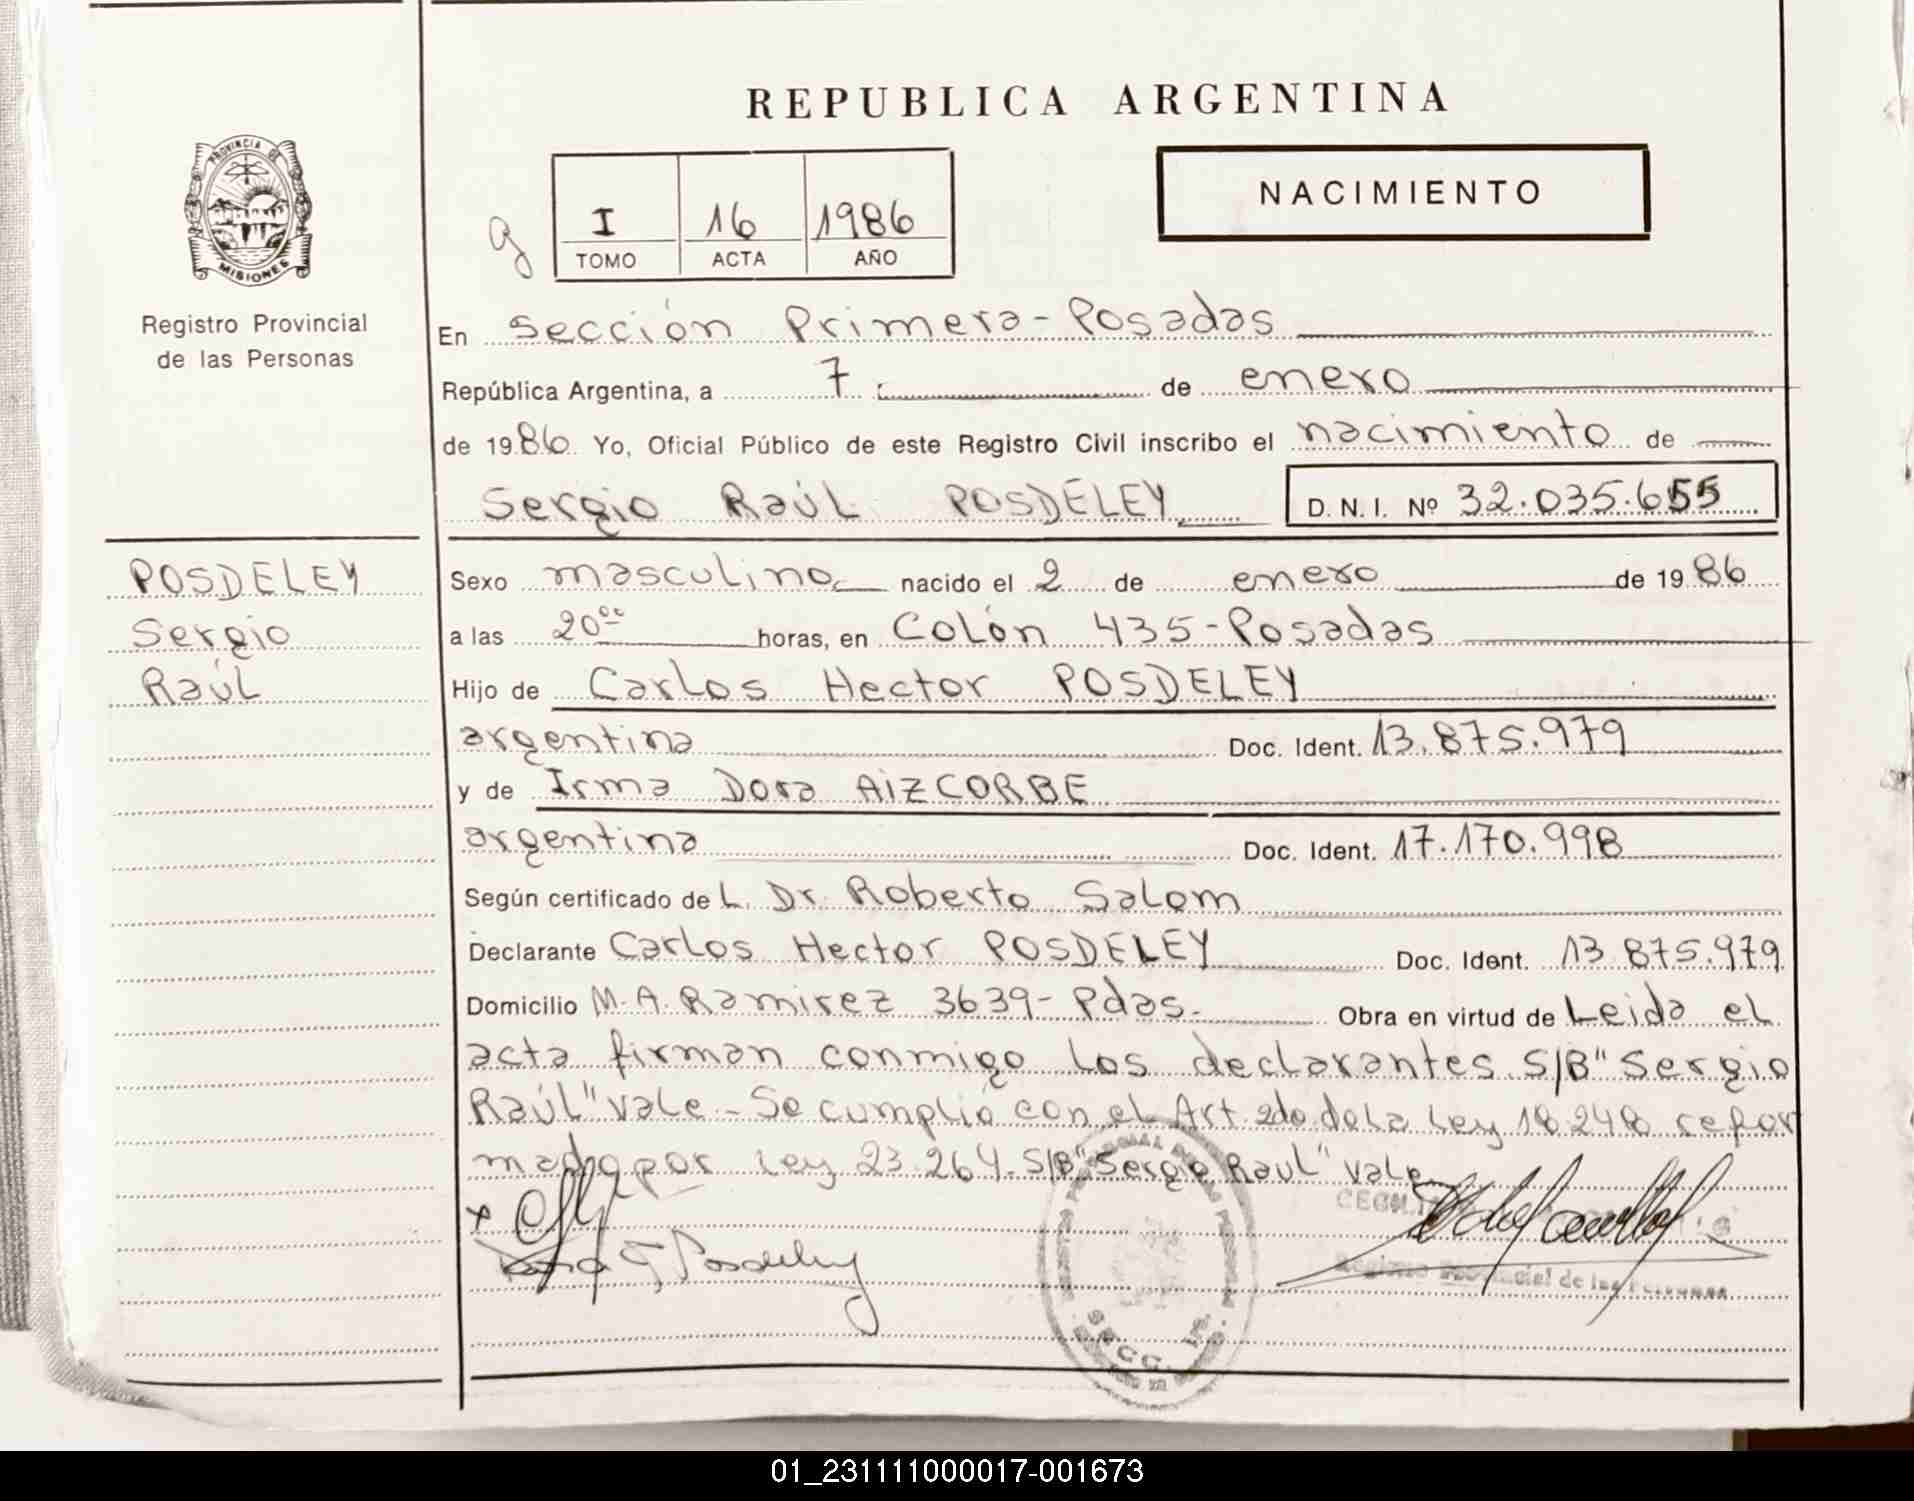 REPUBLICA ARGENTINA
PROVINCIA DE
MISIONES
Registro Provincial
de las Personas
g
I 16 1986
TOMO ACTA AÑO
NACIMIENTO
En Sección Primera - Posadas
República Argentina, a 7 de enero
de 1986. Yo, Oficial Público de este Registro Civil inscribo el nacimiento de
Sergio Raúl POSDELEY D. N. I. Nº 32.035.655
POSDELEY
Sergio
Raúl
Sexo masculino nacido el 2 de enero de 1986
a las 20⁰⁰ horas, en Colón 435 - Posadas
Hijo de Carlos Hector POSDELEY
argentina Doc. Ident. 13.875.979
y de Irma Dora AIZCORBE
argentina Doc. Ident. 17.170.998
Según certificado de L. Dr. Roberto Salom
Declarante Carlos Hector POSDELEY Doc. Ident. 13.875.979
Domicilio M. A. Ramirez 3639 - Pdas. Obra en virtud de Leida el
acta firman conmigo los declarantes S/B "Sergio
Raúl" vale - Se cumplió con el Art. 2do de la Ley 18.248 refor
mado por Ley 23.264. S/B "Sergio Raul" vale
Posdeley
Registro Provincial de las Personas
SECC. 1ª.
01_231111000017-001673